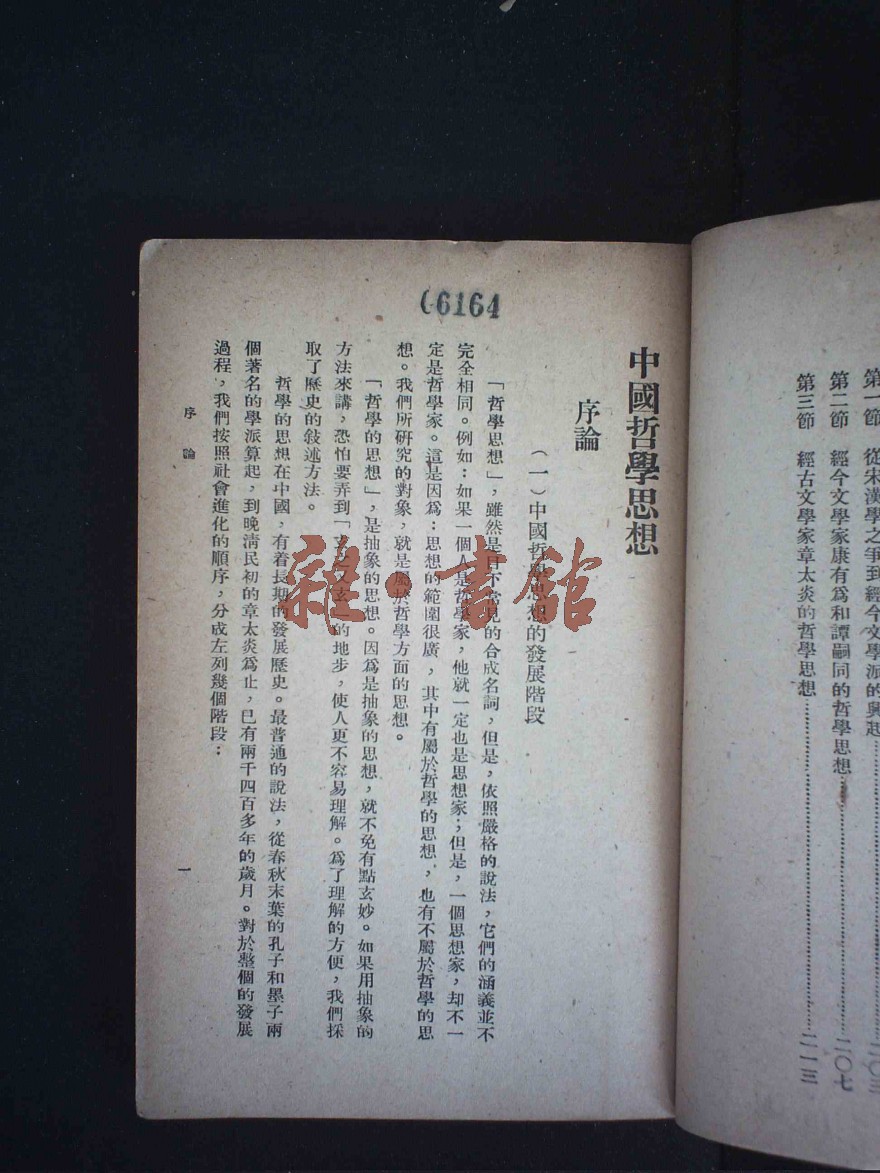 第一節 從宋漢學之爭到經今文學派的興起……二〇三
第二節 經今文學家康有爲和譚嗣同的哲學思想……二〇七
第三節 經古文學家章太炎的哲學思想……二一三
06164
中國哲學思想
序論
（一）中國哲學思想的發展階段
「哲學思想」，雖然是目下常見的合成名詞，但是，依照嚴格的說法，它們的涵義並不
完全相同。例如：如果一個人是哲學家，他就一定也是思想家；但是，一個思想家，却不一
定是哲學家。這是因爲：思想的範圍很廣，其中有屬於哲學的思想，也有不屬於哲學的思
想。我們所研究的對象，就是屬於哲學方面的思想。
「哲學的思想」，是抽象的思想。因爲是抽象的思想，就不免有點玄妙。如果用抽象的
方法來講，恐怕要弄到「玄之又玄」的地步，使人更不容易理解。爲了理解的方便，我們採
取了歷史的敍述方法。
哲學的思想在中國，有着長期的發展歷史。最普通的說法，從春秋末葉的孔子和墨子兩
個著名的學派算起，到晚淸民初的章太炎爲止，已有兩千四百多年的歲月。對於整個的發展
過程，我們按照社會進化的順序，分成左列幾個階段：
序論
一
雜·書館